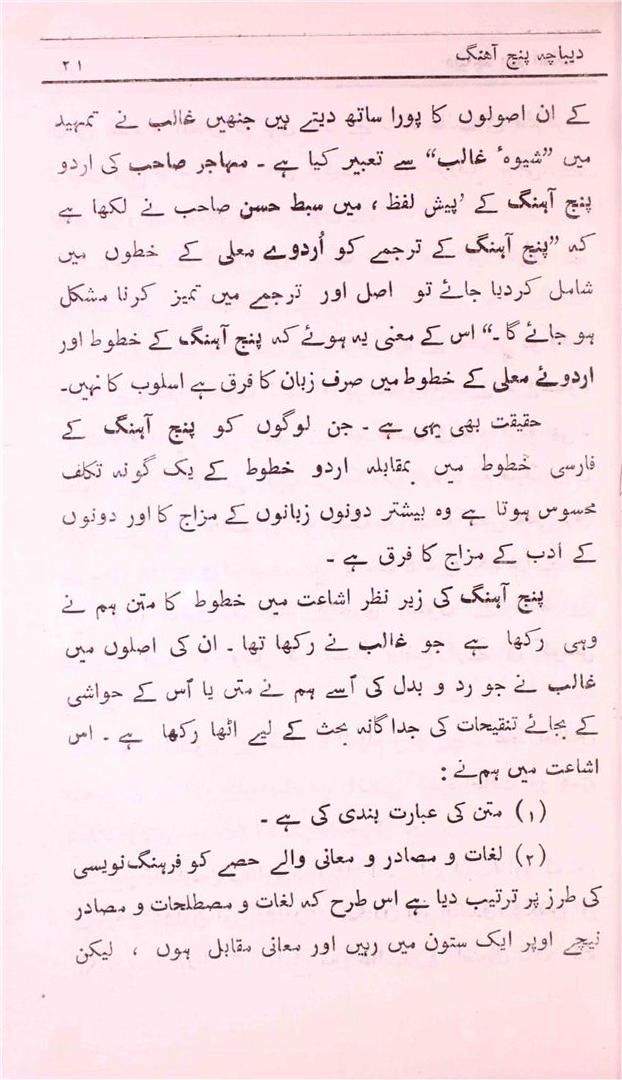 دیباچہ پنج آهنگ
۲۱
کے ان اصولوں کا پورا ساتھ دیتے ہیں جنھیں غالب نے تمہید
میں ”شیوہٴ غالب“ سے تعبیر کیا ہے ۔ مهاجر صاحب کی اردو
پنج آهنگ کے ’پیش لفظ ، میں سبط حسن صاحب نے لکھا ہے
کہ ”پنج آهنگ کے ترجمے کو اُردوے معلی کے خطوں میں
شامل کردیا جائے تو اصل اور ترجمے میں تمیز کرنا مشکل
ہو جائے گا ۔“ اس کے معنی یہ ہوئے کہ پنج آهنگ کے خطوط اور
اردوئے معلی کے خطوط میں صرف زبان کا فرق ہے اسلوب کا نہیں۔
حقیقت بھی یہی ہے ۔ جن لوگوں کو پنج آهنگ کے
فارسی خطوط میں بمقابلہ اردو خطوط کے یک گونہ تکلف
محسوس ہوتا ہے وہ بیشتر دونوں زبانوں کے مزاج کا اور دونوں
کے ادب کے مزاج کا فرق ہے ۔
پنج آهنگ کی زیر نظر اشاعت میں خطوط کا متن ہم نے
وہی رکھا ہے جو غالب نے رکھا تھا ۔ ان کی اصلوں میں
غالب نے جو رد و بدل کی اُسے ہم نے متن یا اُس کے حواشی
کے بجائے تنقیحات کی جداگانہ بحث کے لیے اٹھا رکھا ہے ۔ اس
اشاعت میں ہم نے :
(۱) متن کی عبارت بندی کی ہے ۔
(۲) لغات و مصادر و معانی والے حصے کو فرہنگ نویسی
کی طرز پر ترتیب دیا ہے اس طرح کہ لغات و مصطلحات و مصادر
نیچے اوپر ایک ستون میں رہیں اور معانی مقابل ہوں ، لیکن